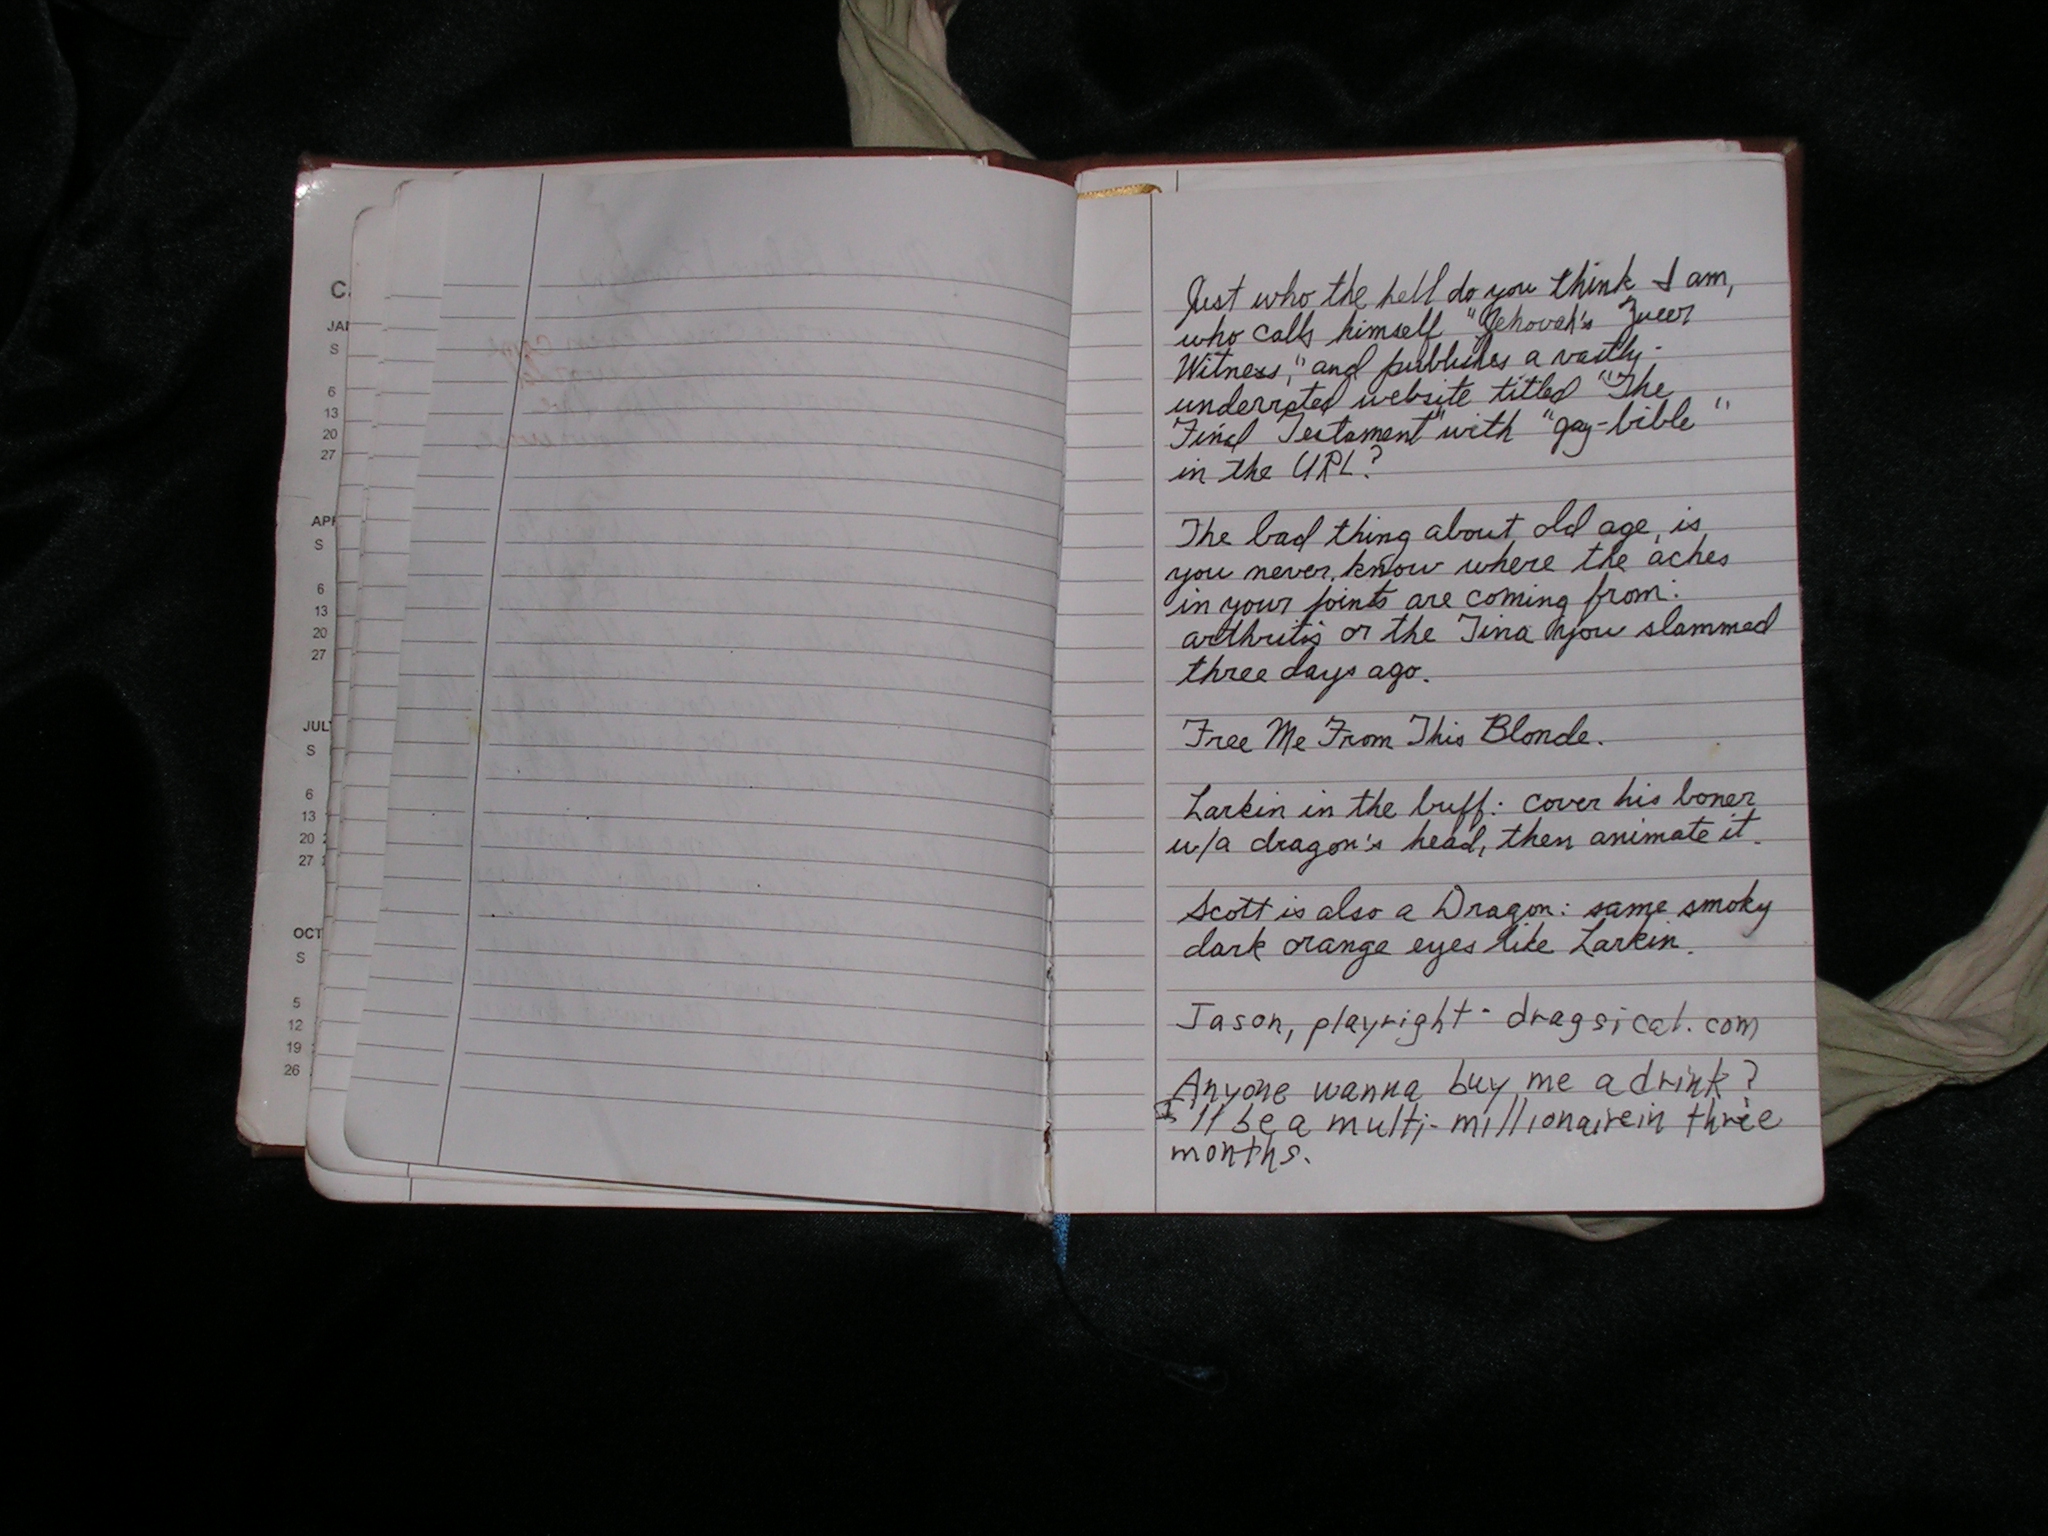 C.
JAN
S
6
13
20
27
APR
S
6
13
20
27
JULY
S
6
13
20 2
27
OCT
S
5
12
19
26
Just who the hell do you think I am,
who calls himself "Jehovah's Queer
Witness," and publishes a vastly-
underrated website titled "The
Final Testament" with "gay-bible"
in the URL?
The bad thing about old age, is
you never know where the aches
in your joints are coming from:
arthritis or the Tina you slammed
three days ago.
Free Me From This Blonde.
Larkin in the buff: cover his boner
w/a dragon's head, then animate it.
Scott is also a Dragon: same smoky
dark orange eyes like Larkin.
Jason, playright - dragsical.com
Anyone wanna buy me a drink?
I'll be a multi-millionaire in three
months.